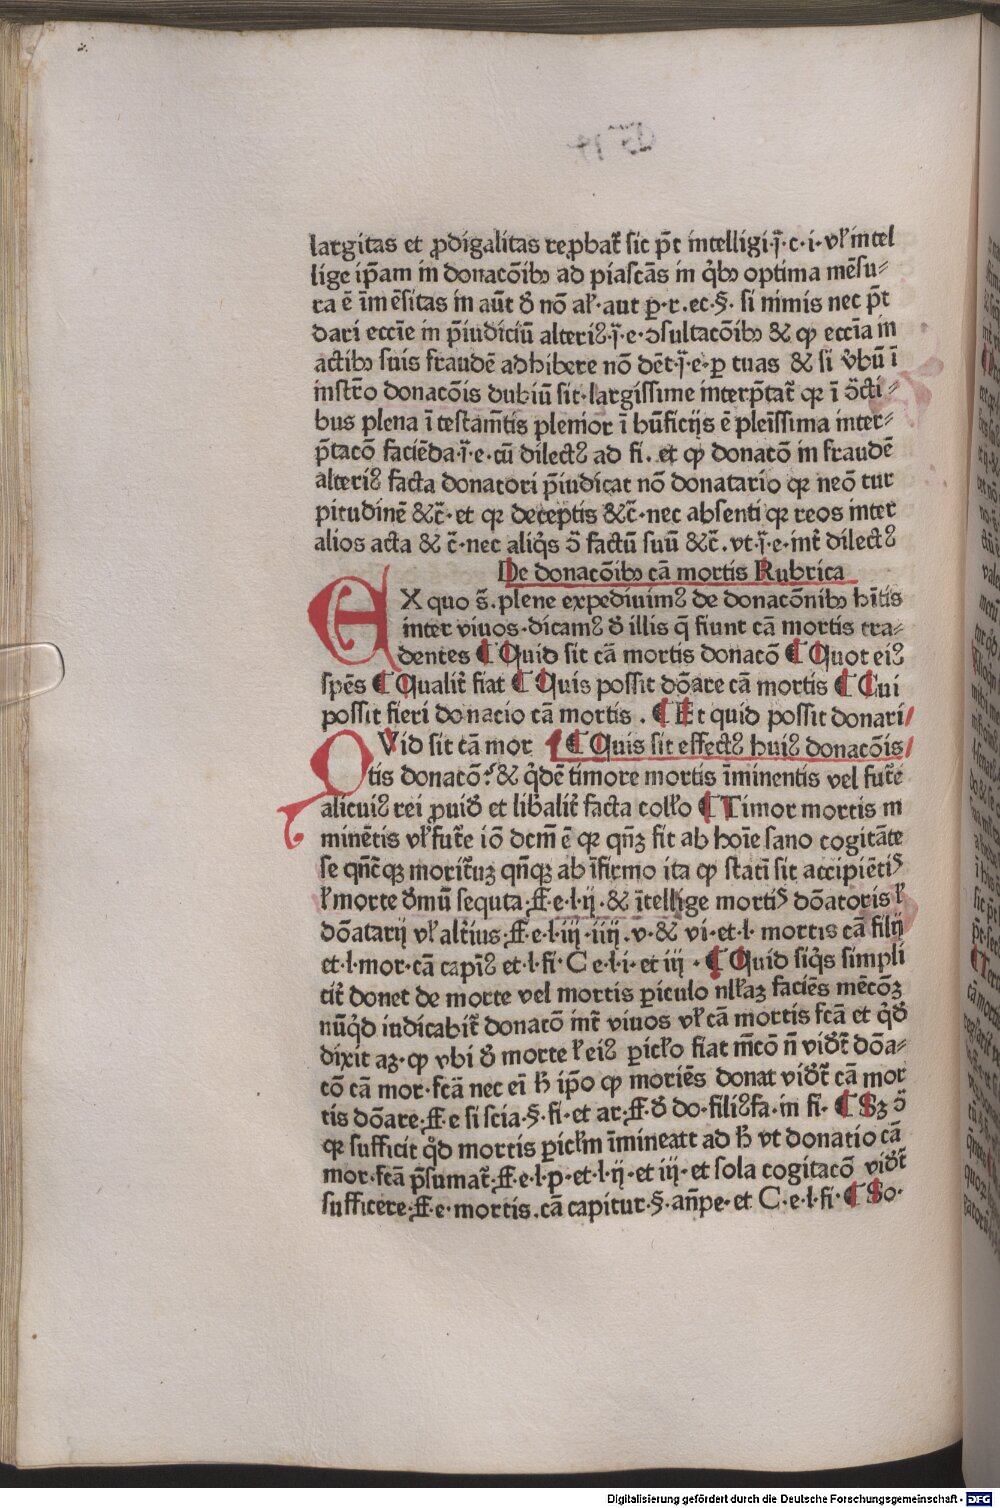 largitas et ꝓdigalitas reꝓbat᷑ sic p̄t intelligi·j̄·c·i·vꝉ intel
lige ip̄am in donacōibꝫ ad piascās in q̇bꝫ optima mēsu⸗
ra ē īmēsitas in aūt ꝺ̄ nō aꝉ·aut ꝑ·r.ec·§· si nimis nec p̄t
dari ecc̄ie in p̄iudiciū alteriꝰ·j̄·e·ↄsultacōibꝫ & ꝙ ecc̄ia in
actibꝫ suis fraudē adhibere nō dēt·j̄·e·ꝑ tuas & si v̄bū ī
inst̄ro donacōis dubiū sit·largissime interp̄tat᷑ qꝛ ī ↄ̄cti⸗
bus plena ī testam̄tis plenior ī bn̄ficijs ē pleīssima inter⸗
p̄tacō faciēda·j̄·e·cū dilectꝰ ad fi.·et ꝙ donacō in fraudē
alteriꝰ facta donatori p̄iudicat nō donatario qꝛ neō tur
pitudinē &c̄·et qꝛ deceptis &c̄·nec absenti qꝛ reos inter
alios acta & c̄·nec aliq̇s ↄ̄ factū suū &c̄.vt·j̄·e·int᷑ dilectꝰ
De donacōibꝫ cā mortis Rubrica
EX quo s̄.plene expediuimꝰ de donacōnibꝫ hītis
inter viuos·dicamꝰ ꝺ̄ illis q̄ fiunt cā mortis tra⸗
dentes ¶ Quid sit cā mortis donacō ¶ Quot eiꝰ
spēs ¶ Qualit᷑ fiat ¶ Quis possit dōare cā mortis ¶ Cui
possit fieri donacio cā mortis . ¶ Et quid possit donari
QVid sit cā mor ¶ Quis sit effectꝰ huiꝰ donacōis
tis donacō? & q̇dē timore mortis īminentis vel fut᷑e
alicuiꝰ rei ꝓuiꝺ̄ et lib̄alit᷑ facta colꝉo ¶ Timor mortis in
minētis vꝉ fut᷑e iō dcm̄ ē qꝛ qn̄ꝫ fit ab hoīe sano cogitāte
se qn̄cꝫ morit᷑uꝫ qn̄qꝫ ab īfirmo ita ꝙ statī sit accipiētiꝰ
ꝉ morte ꝺ̄mū sequta·ff·e·l·ij·& ītellige mortiꝰ dōatoris ꝉ
dōatarij vꝉ alt᷑ius·ff·e·l·iij·iiij.v·& vi·et·l·mortis cā filij
et·l·mor·cā capīꝰ et·l·fi·C e·l·i·et iij · ¶ Quid siq̇s simpli
cit᷑ donet de morte vel mortis ꝑiculo nlꝉaꝫ faciēs mēcōꝫ
nūq̇d iudicabit᷑ donacō int᷑ viuos vꝉ cā mortis fcā et q̇ꝺ̄
dixit aꝫ·ꝙ vbi ꝺ̄ morte ꝉ eiꝰ ꝑicꝉo fiat m̄cō n̄ viꝺ̄t᷑ dōa⸗
cō cā mor·fcā nec eī ħ ip̄o ꝙ moriēs donat viꝺ̄t᷑ cā mor
tis dōare·ff·e si scia·§·fi·et ar·ff·ꝺ̄ do·filiꝰfa·in fi· ¶ Sꝫ ↄ̄
qꝛ sufficit q̇d mortis ꝑicꝉm īmineatt ad ħ vt donatio cā
mor·fcā p̄sumat᷑·ff·e·l·p·et·l·ij·et iij·et sola cogitacō viꝺ̄t᷑
sufficere·ff·e·mortis.cā capitur·§·an̄pe·et C·e·l·fi·¶ So·
Digitalisierung gefördert durch die Deutsche Forschungsgemeinschaft - DFG